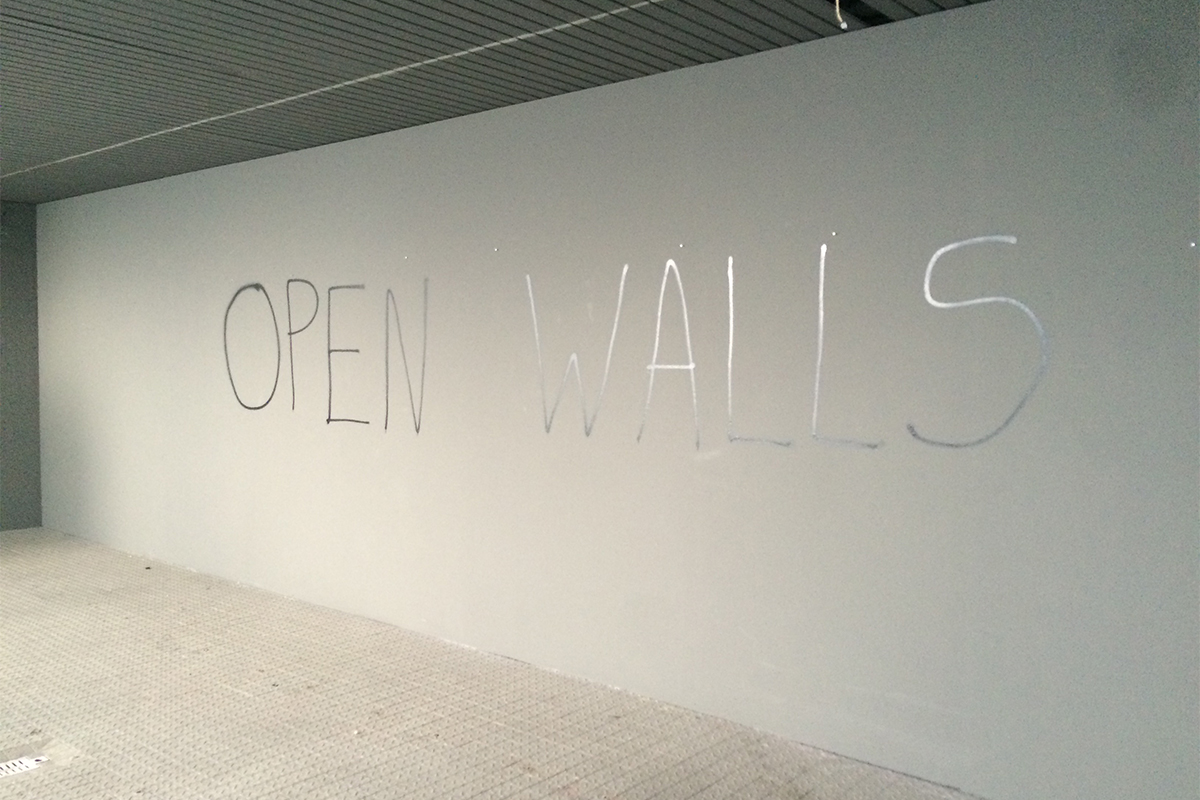 OPEN WALLS